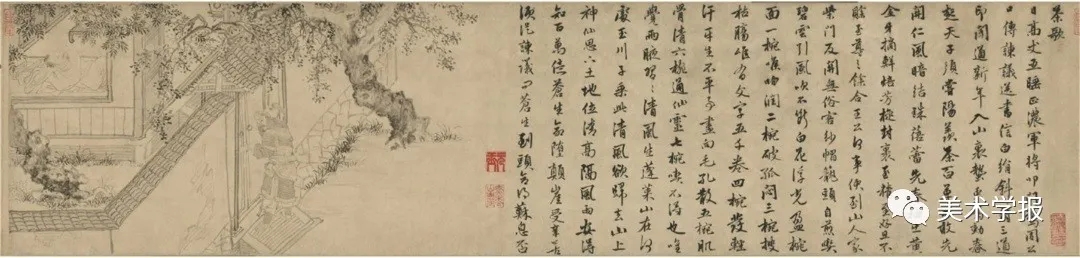 茶歌
日高丈五睡正濃軍將叩 周公
口傳諫議送書信白絹斜 三道
印聞道新年入山裏蟄虫驚動春
起天子須嘗陽羨茶百草不敢先
開仁風暗結珠蓓蕾先春 黃
金芽摘鮮焙芳旋封裹至精至好且不
奢至尊之餘合王公何事便到山人家
柴門反關無俗客紗帽籠頭自煎喫
碧雲引風吹不斷白花浮光盈椀
面一椀喉吻潤二椀破孤悶三椀搜
枯腸惟有文字五千卷四椀發輕
汗平生不平事盡向毛孔散五椀肌
骨清六椀通仙靈七椀喫不得也唯
覺兩腋習々清風生蓬萊山在何
處玉川子乘此清風欲歸去山上
神仙司下土地位清高隔風雨安得
知百萬億蒼生命墮顛崖受辛苦
須從諫議問蒼生到頭合得蘇息否
美术学报